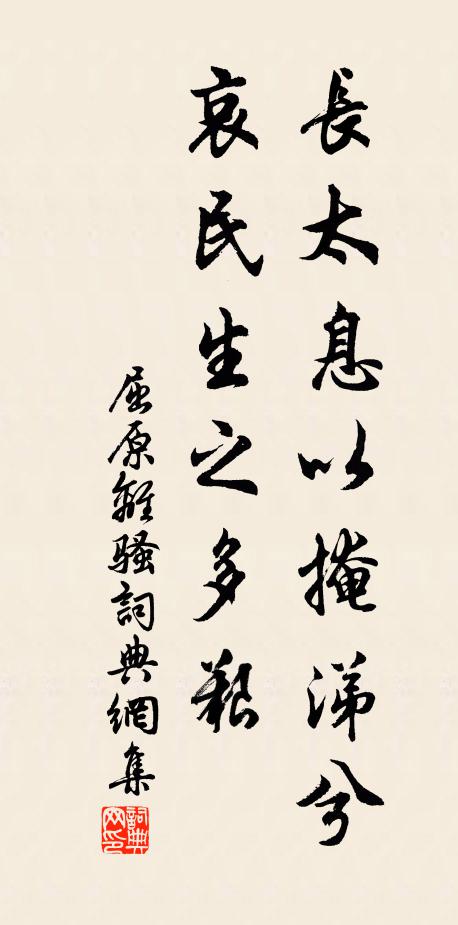 長太息以掩涕兮
哀民生之多艱
屈原離騷詞典網集
詞典网印